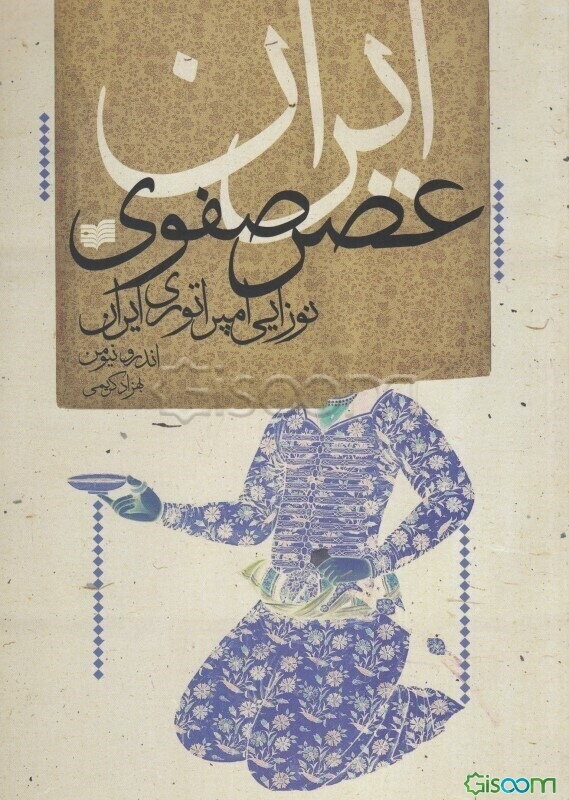 ایران
عصر صفوی
نوزایی امپراتوری ایران
اندرو نیومن
بهزاد کریمی
Gisoom
Gisoom